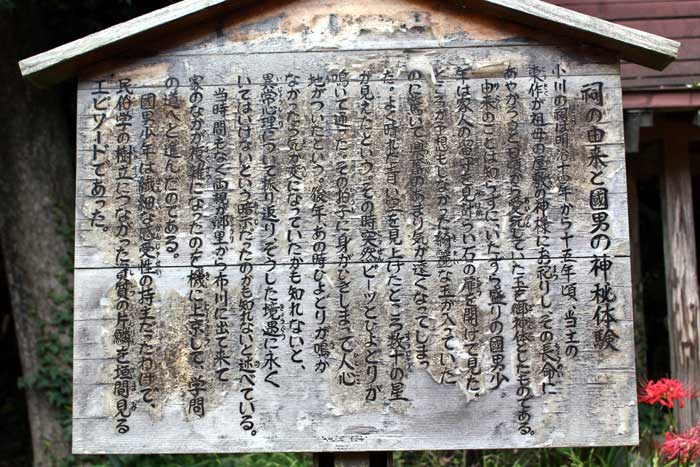 祠の由来と國男の神秘体験
小川の祠は明治十四年から十五年頃、当主の
東作が祖母の屋敷の神様にお祀りし、その長命に
あやかろうと日頃から愛玩していた玉を御神体としたものである。
由来のことは知らずにいたずら盛りの國男少
年は家人の留守を見計らい石の扉を開けて見た。
ところが予想もしなかった綺麗な玉が入っていた
のに驚いて、興奮のあまり気が遠くなってしまっ
た。よく晴れた青い空を見上げたところ数十の星
が見えたという。その時突然ピーッとひよどりが
鳴いて通った。その拍子に身がひきしまって人心
地がついたという。後年、あの時ひよどりが鳴か
なかったら気が変になっていたかも知れないと、
異常心理について振り返り、そうした境遇に永く
いてはいけないという暗示だったのかも知れないと述べている。
当時間もなく両親が郷里から布川に出て来て
家のなかが複雑になったのを機に上京して、学問
の道へと進んだのである。
國男少年は繊細な感受性の持主だったわけで、
民俗学の樹立につながった資質の片鱗を垣間見る
エピソードであった。